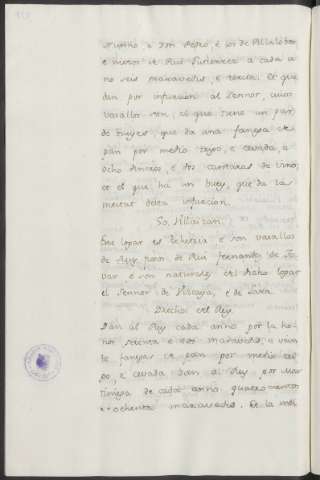 Nunno, e Don Pedro, e los de Villalobos
e menos de Rui Gutierrez a cada u
no seis maravedis, e tercia. Et que
dan por infurcion al Sennor, cuios
vasallos son, el que tiene un par
de bueyes, que da una fanega de
pan por medio trigo, e cevada, e
ocho dineros, e dos cantaras de vino;
et el que há un buey, que da la
meitat desta infurcion.
So, Villaizan.
Este logar es behetria e son vasallos
de Rui Fernandez de To-
var e son naturales del dicho logar
el Sennor de Vizcaya, e de Lara.
Drechos del Rey.
Dan al Rey cada anno por la
maravedis, e
fanegas de pan por medio tri
go, e cevada dan al Rey por Mar
tiniega de cada anno quatrocientos
e ochenta maravedis. De la mo